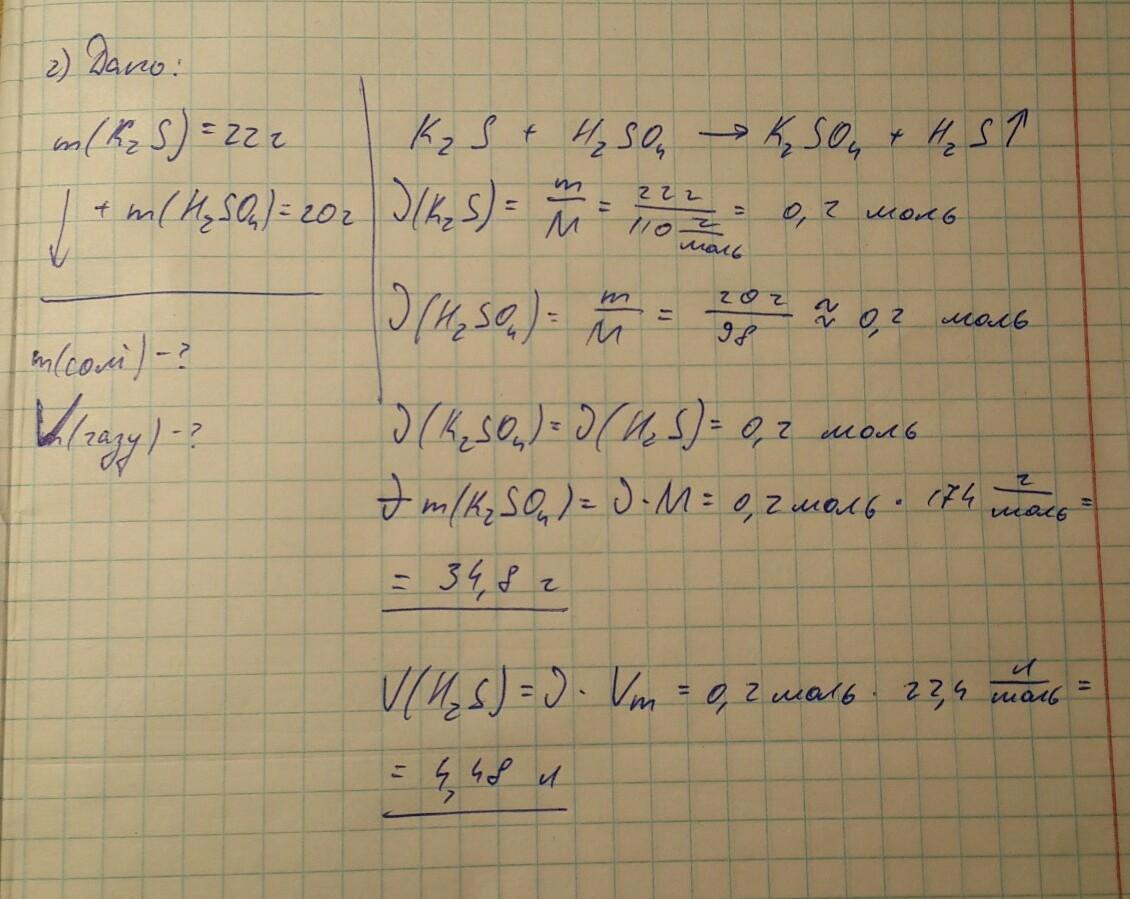 2) Дано:
m(K₂S) = 22 г
↓ + m(H₂SO₄) = 20 г
m(солі) - ?
V(газу) - ?
K₂S + H₂SO₄ → K₂SO₄ + H₂S↑
ν(K₂S) = m/M = 22 г / 110 г/моль = 0,2 моль
ν(H₂SO₄) = m/M = 20 г / 98 ≈ 0,2 моль
ν(K₂SO₄) = ν(H₂S) = 0,2 моль
m(K₂SO₄) = ν · M = 0,2 моль · 174 г/моль =
= 34,8 г
V(H₂S) = ν · Vm = 0,2 моль · 22,4 л/моль =
= 4,48 л